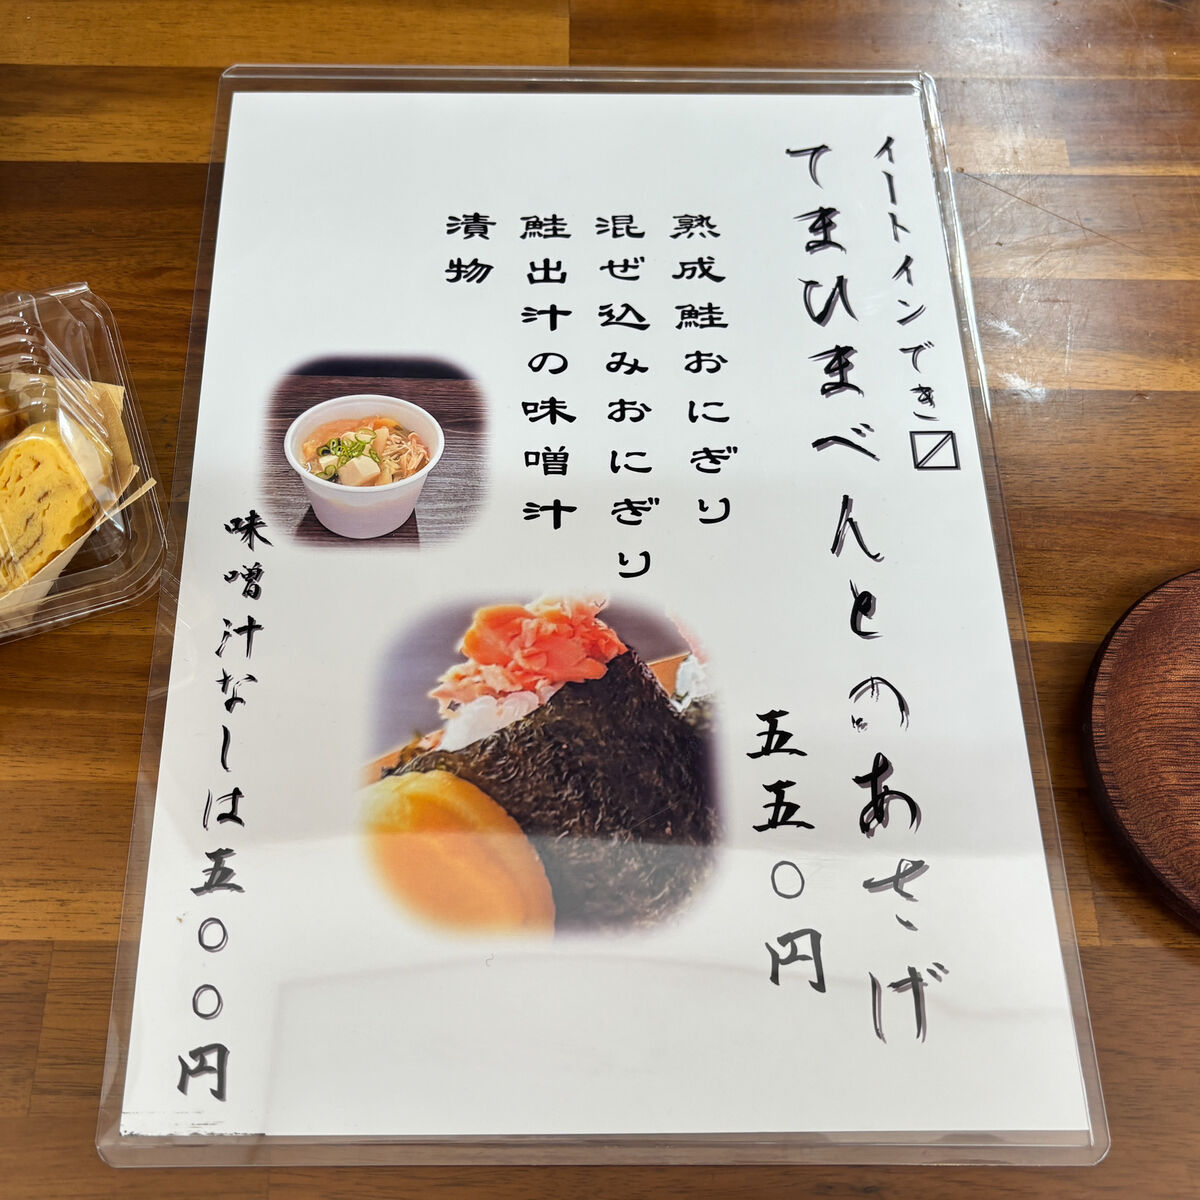 イートインでき〼
てまひまべんとのあさげ
五五〇円
熟成鮭おにぎり
混ぜ込みおにぎり
鮭出汁の味噌汁
漬物
味噌汁なしは五〇〇円